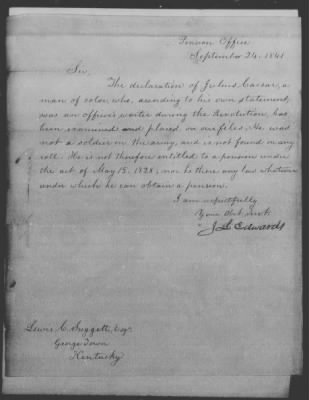 Pension Office
September 24. 1841
Sir,
The declaration of Julius Caesar, a
man of color who, according to his own statement,
was an officers waiter during the Revolution, has
been examined and placed on our files. He was
not a soldier in the army, and is not found on any
roll. He is not therefore entitled to a pension under
the act of May 15. 1828; nor is there any law whatever
under which he can obtain a pension.
I am respectfully
Your Obt. Servt.
J L Edwards
Lewis C. Suggett, Esqr.
George Town
Kentucky